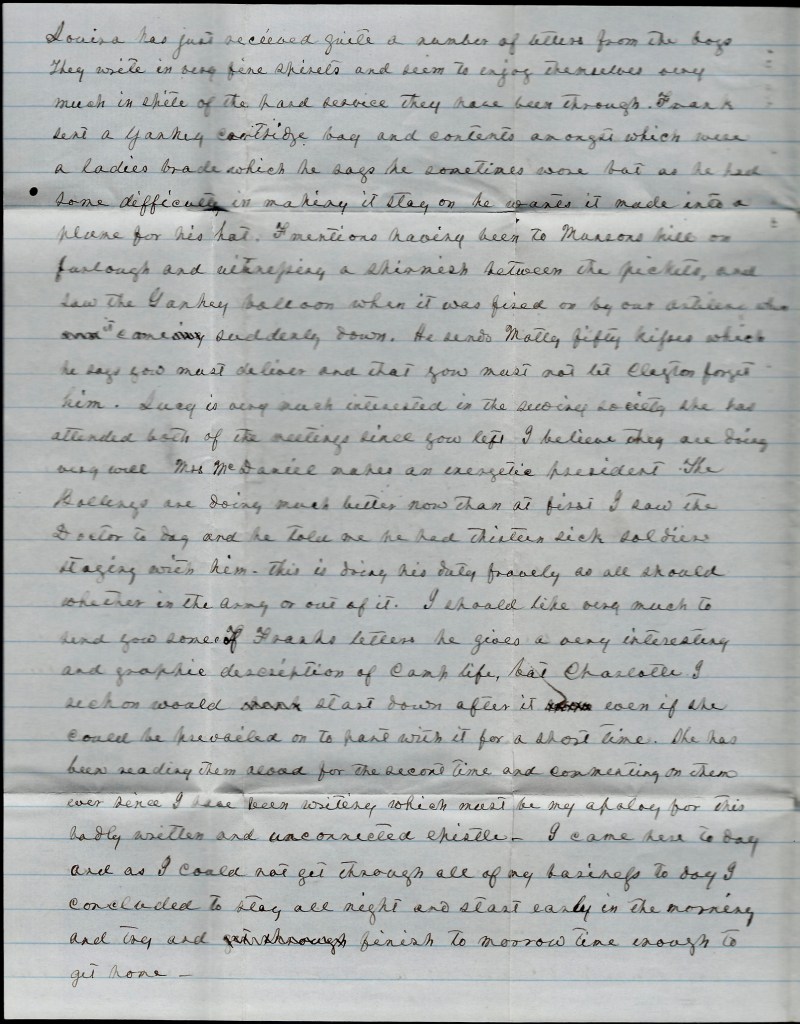 Louisa has just received quite a number of letters from the boys
They write in very fine spirits and seem to enjoy themselves very
much in spite of the hard service they have been through. Frank
sent a Yankey cartridge bag and contents amongst which were
a ladies brade which he says he sometimes wore but as he had
some difficulty in making it stay on he wants it made into a
plume for his hat. F mentions having been to Munsons hill on
furlough and witnessing a skirmish between the pickets, and
saw the Yankey balloon when it was fired on by our artilery
it came suddenly down. He sends Matty fifty kisses which
he says you must deliver and that you must not let Clayton forget
him. Lucy is very much interested in the sewing society she has
attended both of the meetings since you left I believe they are doing
very well Mrs McDaniel makes an energetic president The
are doing much better now than at first I saw the
Doctor to day and he told me he had thirteen sick soldiers
staying with him - this is doing his duty bravely as all should
whether in the army or out of it. I should like very much to
send you some of Franks letters he gives a very interesting
and graphic description of Camp life, but Charlotte I
reckon would start down after it even if she
could be prevailed on to part with it for a short time. She has
been reading them aloud for the second time and commenting on them
ever since I have been writing which must be my apoloy for this
badly written and unconnected epistle - I came here to day
and as I could not get through all of my business to day I
concluded to stay all night and start early in the morning
and try and get through finish to morrow time enough to
get home -